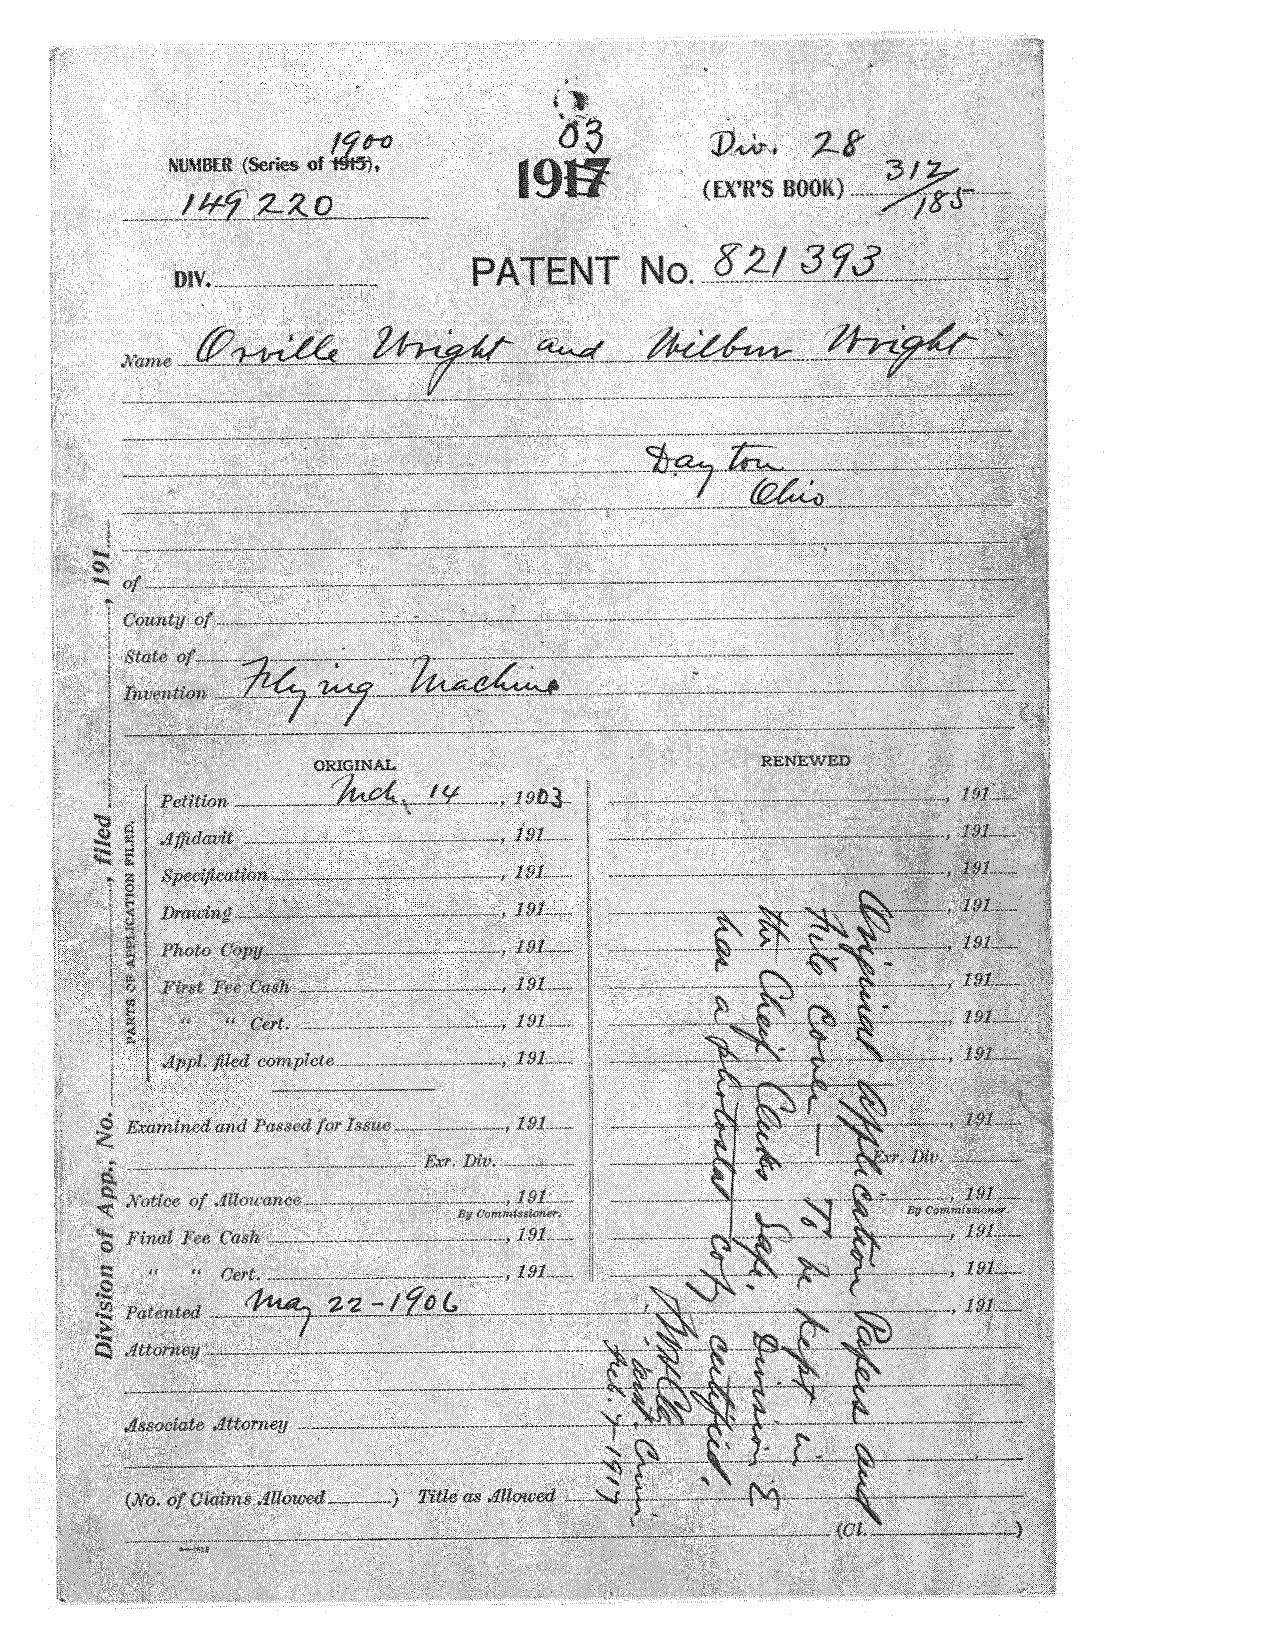 1900
NUMBER (Series of 1915),
149220
03
1917
Div. 28
(EX'R'S BOOK) 312/185
DIV.
PATENT No. 821393
Name Orville Wright and Wilbur Wright
Dayton
Ohio
of
County of
State of
Invention Flying Machine
Division of App., No. , filed , 191
PARTS OF APPLICATION FILED.
ORIGINAL
Petition Mch. 14, 1903
Affidavit , 191
Specification , 191
Drawing , 191
Photo Copy , 191
First Fee Cash , 191
" " Cert. , 191
Appl. filed complete , 191
Examined and Passed for Issue , 191
Exr. Div.
Notice of Allowance , 191
By Commissioner.
Final Fee Cash , 191
" " Cert. , 191
RENEWED
, 191
, 191
, 191
, 191
, 191
, 191
, 191
, 191
, 191
Exr. Div.
, 191
By Commissioner.
, 191
, 191
Patented May 22-1906 , 191
Attorney
Associate Attorney
(No. of Claims Allowed ) Title as Allowed
(Cl. )
Original Application Papers and
File Cover — To be kept in
the Chief Clerks Safe. Division 8
has a photostat copy certified.
Feb. 7-1917